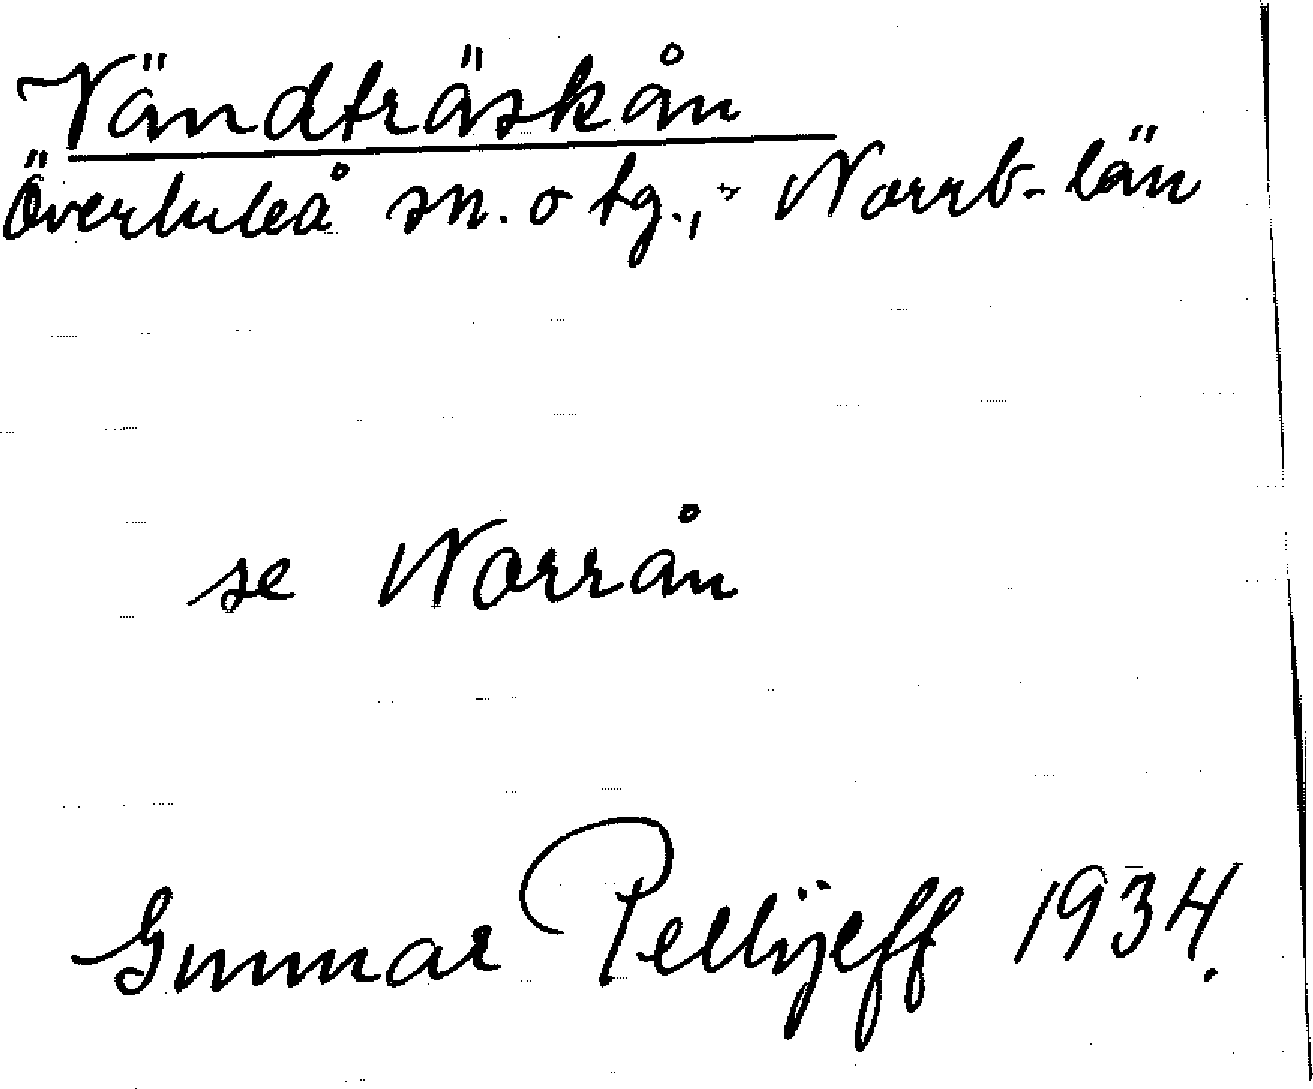 Vändträskån
Överluleå sn. o tg., Norrb. län
se Norrån
Gunnar Pellijeff 1934.